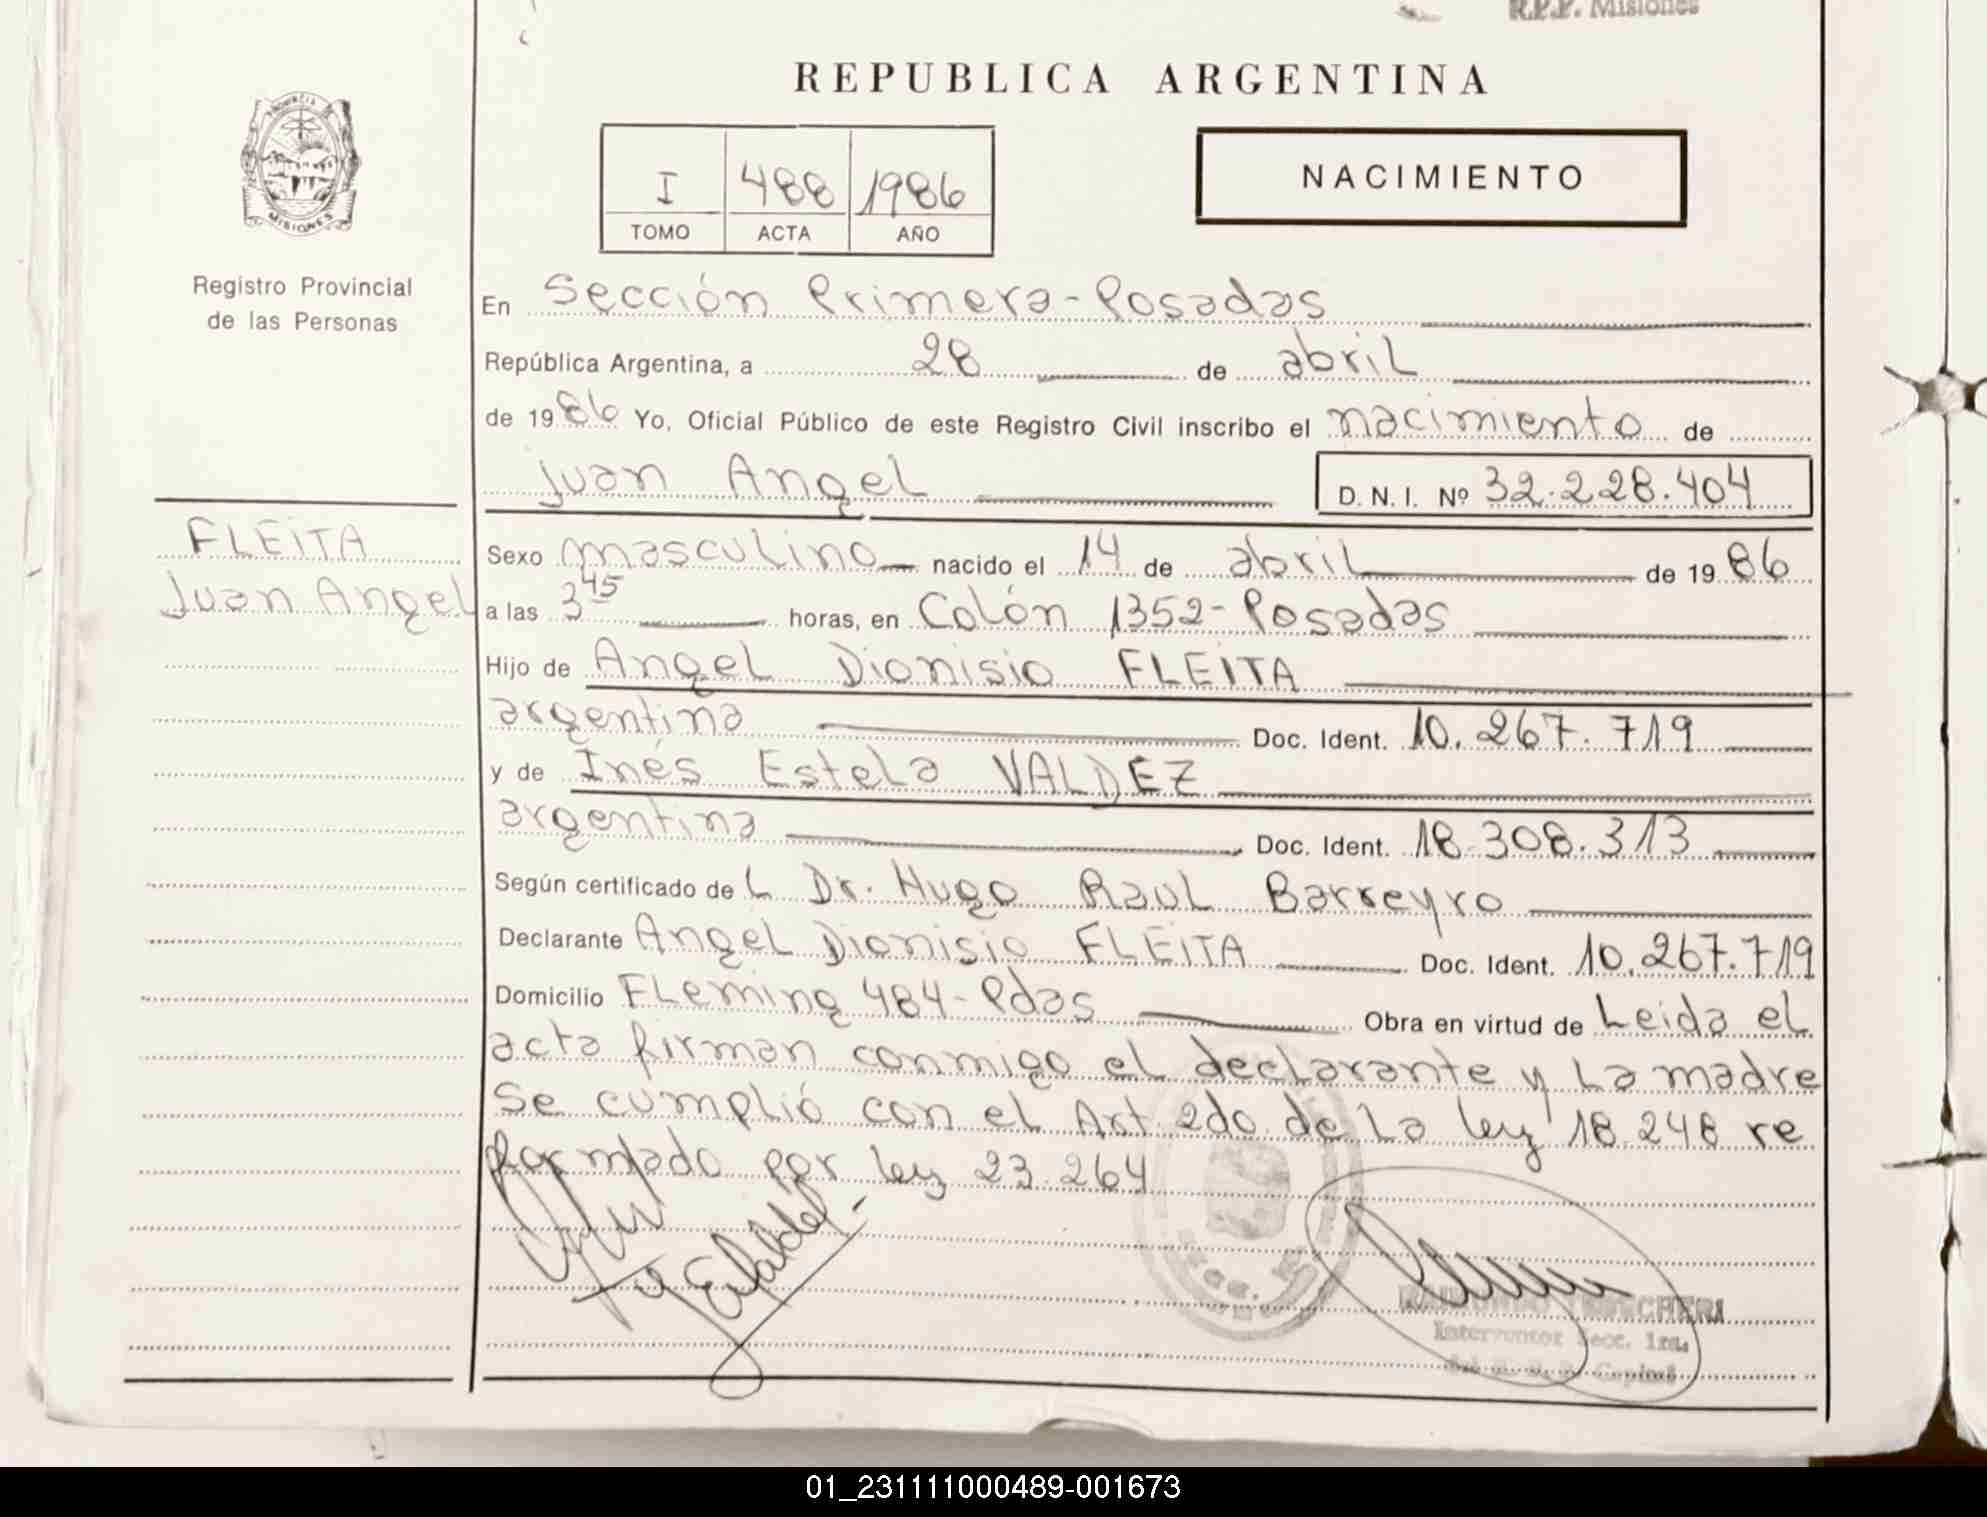 R.P.P. Misiones
REPUBLICA ARGENTINA
PROVINCIA
MISIONES
I 488 1986
TOMO ACTA AÑO
NACIMIENTO
Registro Provincial
de las Personas
En Sección Primera-Posadas
República Argentina, a 28 de abril
de 1986 Yo, Oficial Público de este Registro Civil inscribo el nacimiento de
Juan Angel D. N. I. Nº 32.228.404
FLEITA
Juan Angel
Sexo masculino nacido el 14 de abril de 1986
a las 3 45 horas, en Colón 1352-Posadas
Hijo de Angel Dionisio FLEITA
argentina Doc. Ident. 10.267.719
y de Inés Estela VALDEZ
argentina Doc. Ident. 18.308.313
Según certificado de L Dr. Hugo Raul Barreyro
Declarante Angel Dionisio FLEITA Doc. Ident. 10.267.719
Domicilio Fleming 484-Pdas Obra en virtud de Leida el
acta firman conmigo el declarante y La madre
Se cumplió con el Art 2do de La ley 18.248 re
formado por ley 23.264
RAIMUNDO
Interventor Secc. 1ra.
01_231111000489-001673